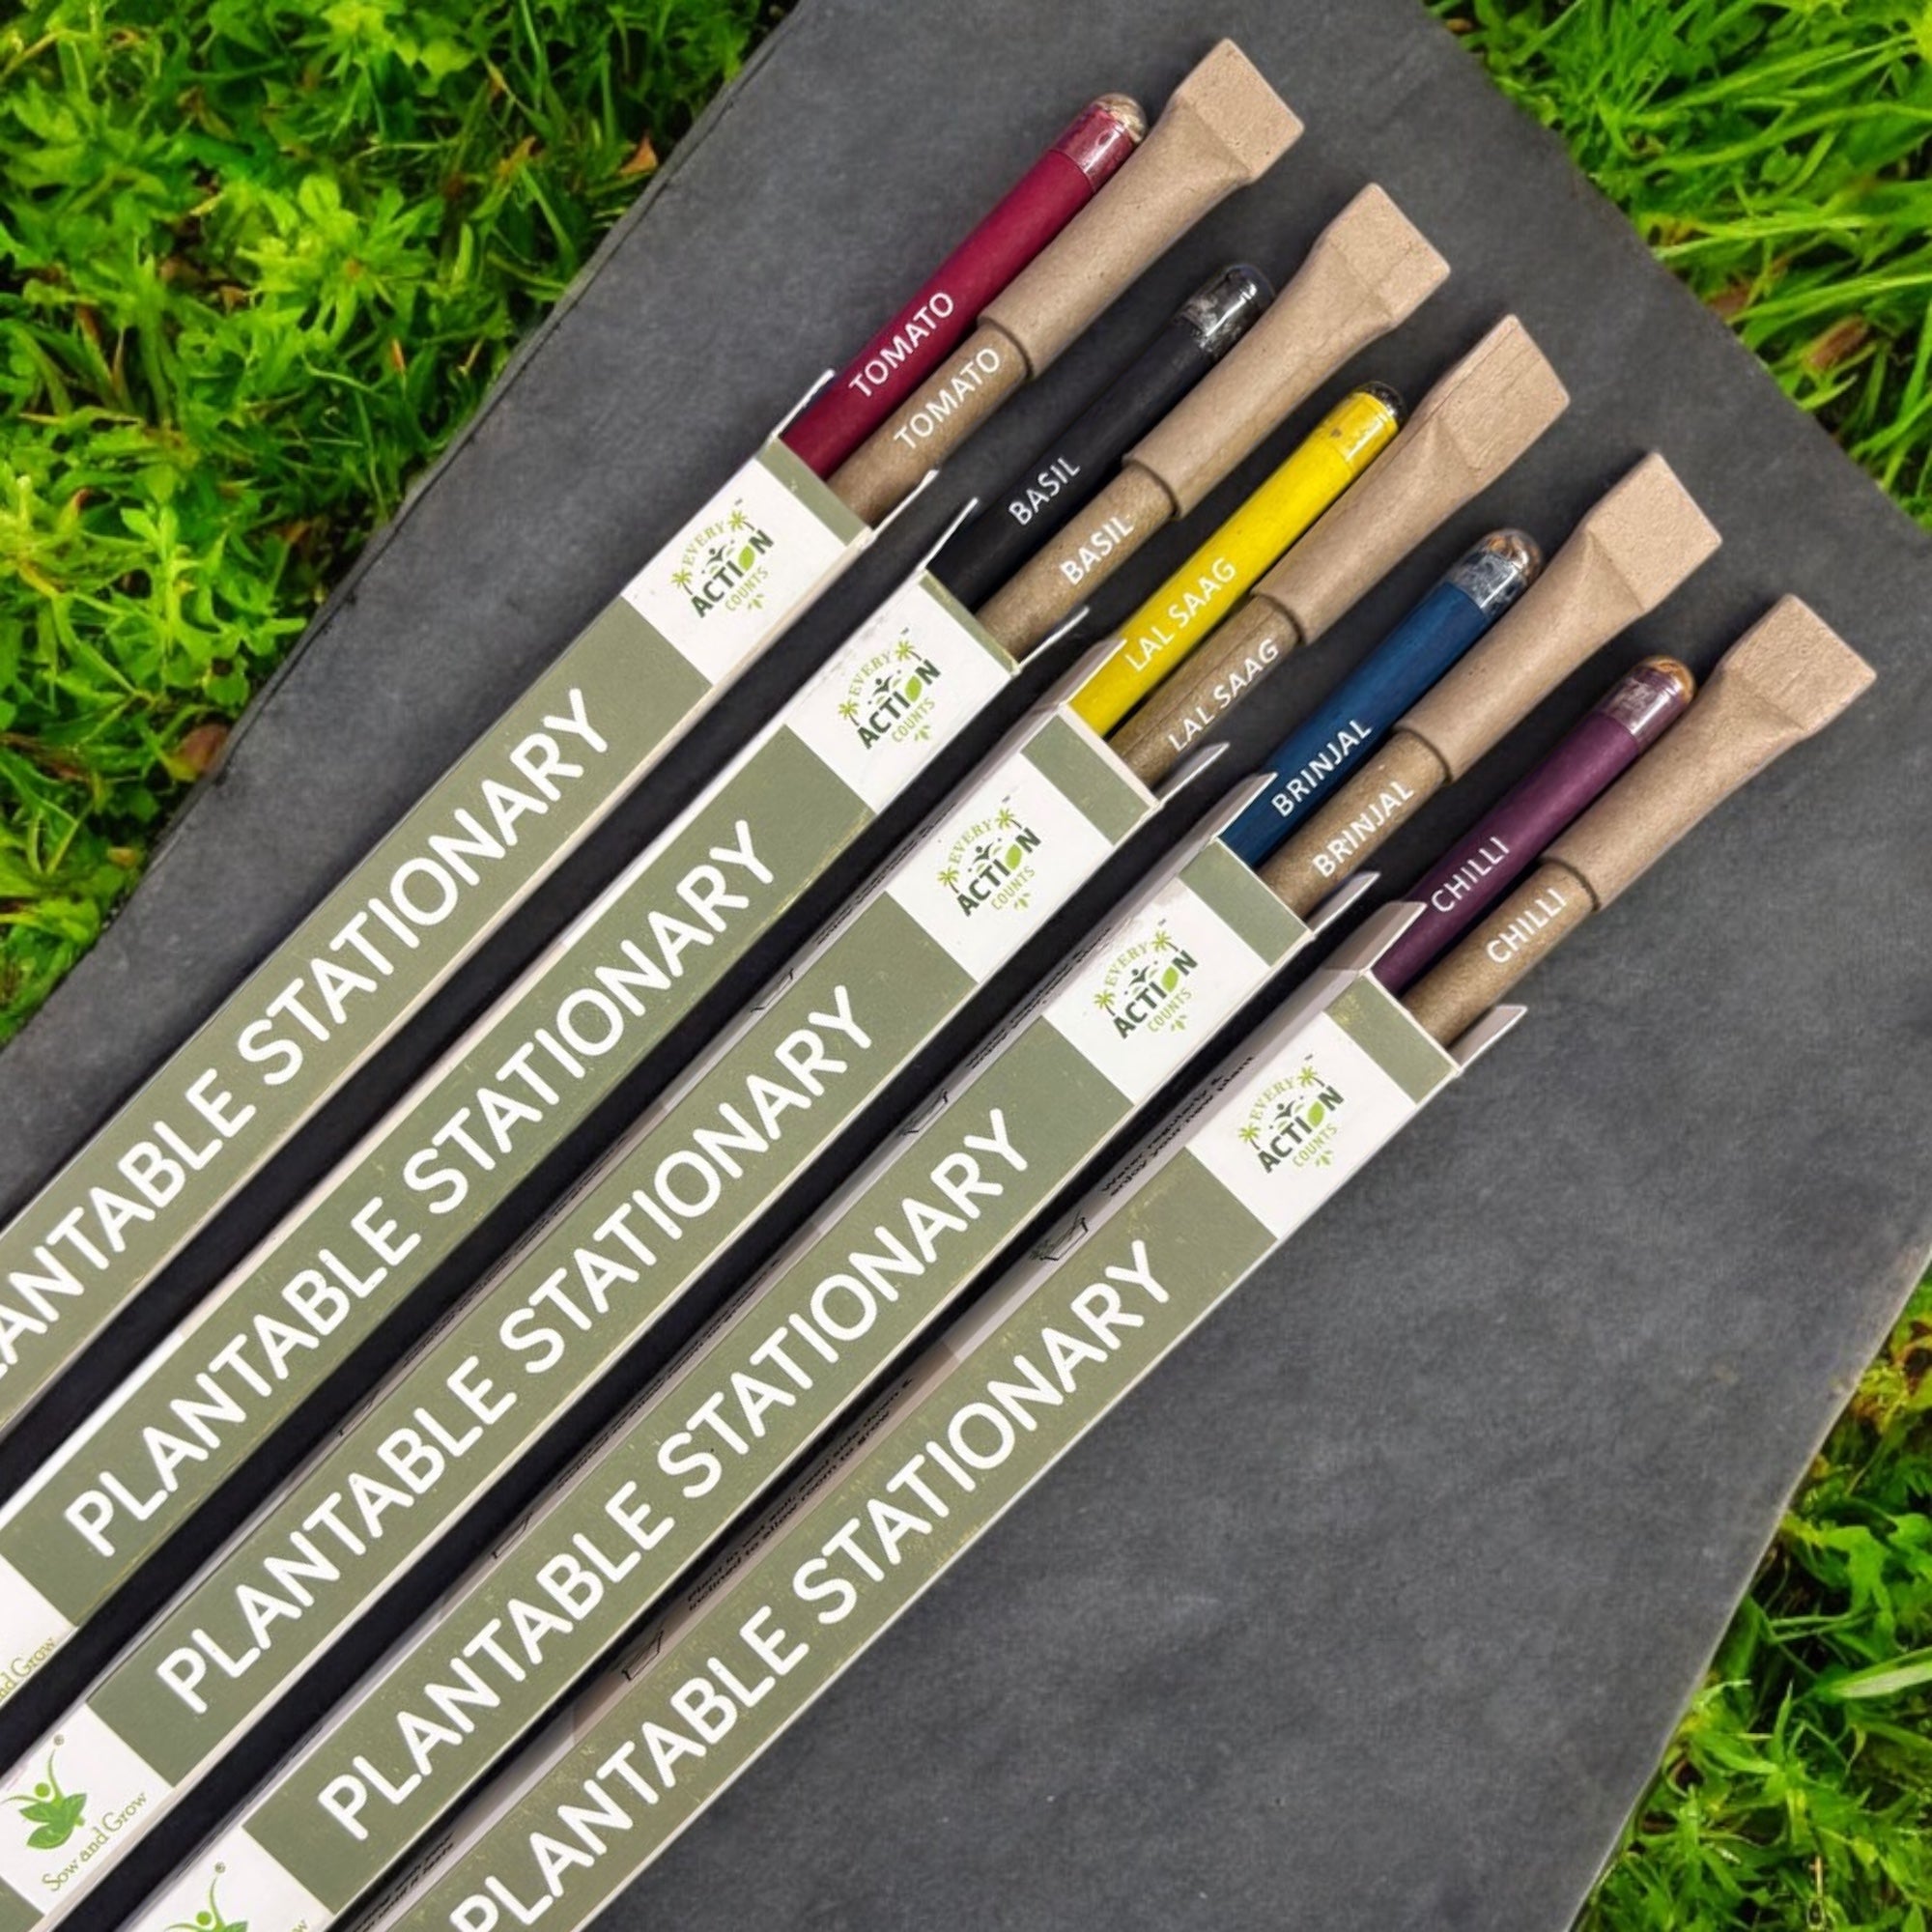 TOMATO
TOMATO
BASIL
BASIL
LAL SAAG
LAL SAAG
BRINJAL
BRINJAL
CHILLI
CHILLI
EVERY
ACTION
COUNTS
PLANTABLE STATIONARY
EVERY
ACTION
COUNTS
PLANTABLE STATIONARY
and Grow
EVERY
ACTION
COUNTS
PLANTABLE STATIONARY
Sow and Grow
EVERY
ACTION
COUNTS
PLANTABLE STATIONARY
EVERY
ACTION
COUNTS
PLANTABLE STATIONARY
Water regularly &
enjoy your new plant